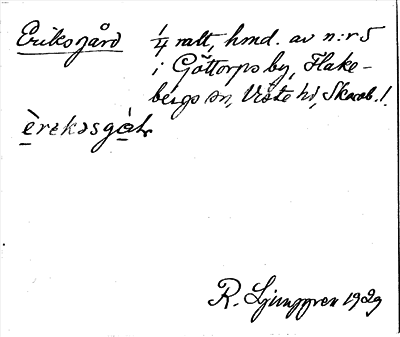 Eriksgård 1/4 mtl, hmd. av n:r 5
i Göttorps by, Flake-
bergs sn, Viste hd, Skarab. l.
èreksgàḷ
R. Ljunggren 1929